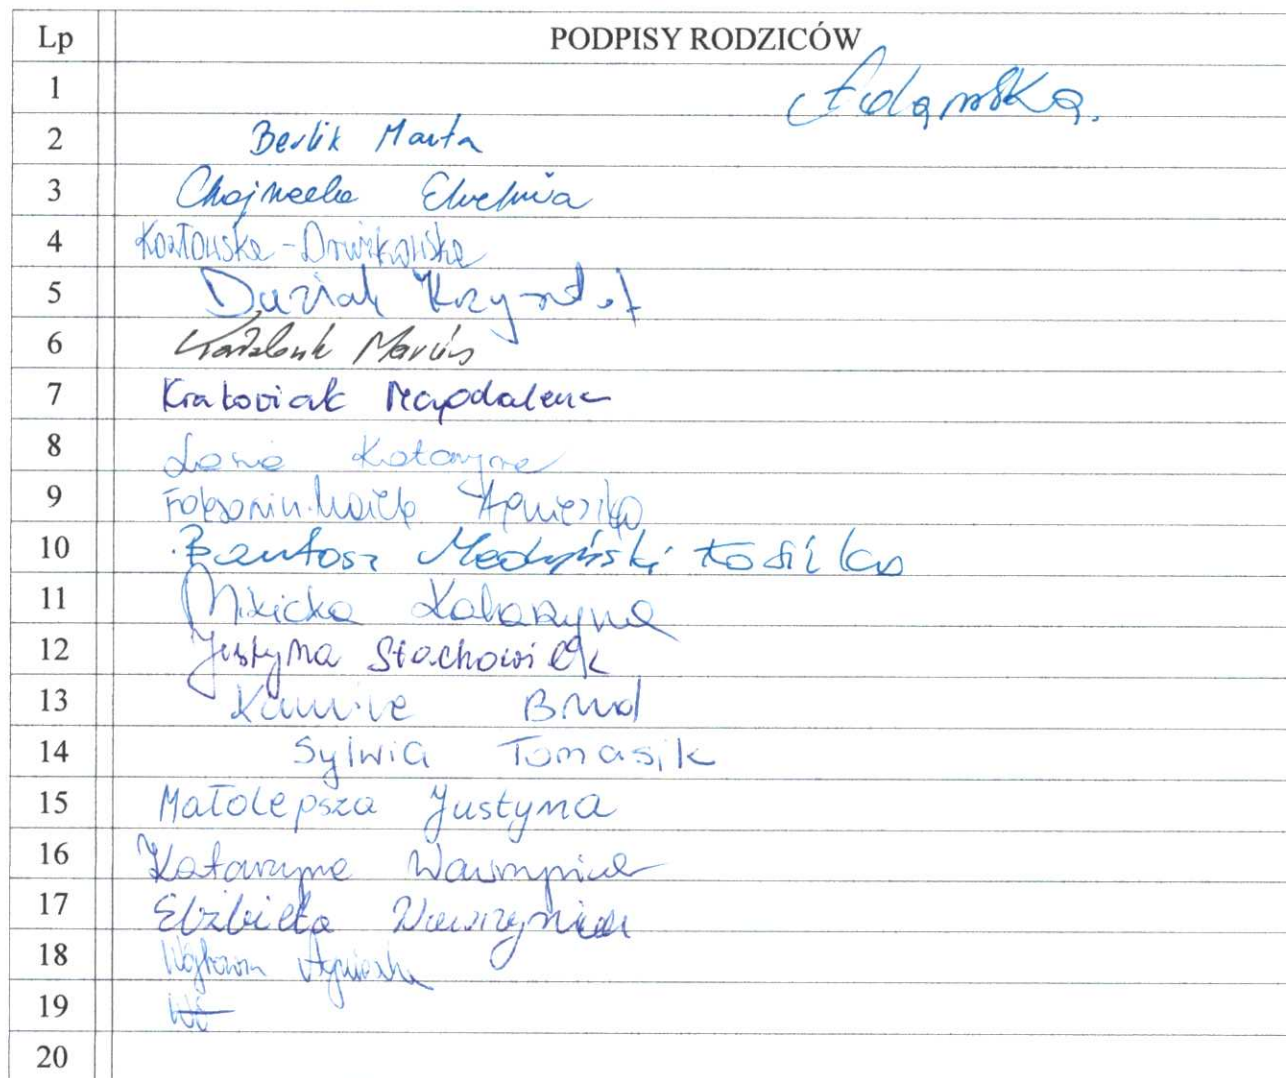 Lp PODPISY RODZICÓW
1 Adamska.
2 Berlik Marta
3 Chojnacka Ewelina
4 Kozłowska-Drwiękowska
5 Duziak Krzysztof
6 Mariusz
7 Kratowiak Magdalena
8 Katarzyna
9 Agnieszka
10 Bartosz
11 Mikicka Katarzyna
12 Justyna Stachowiak
13 Kamila Brud
14 Sylwia Tomasik
15 Małolepsza Justyna
16 Katarzyna Wawrzyniak
17 Elżbieta Wawrzyniak
18 Agnieszka
19
20